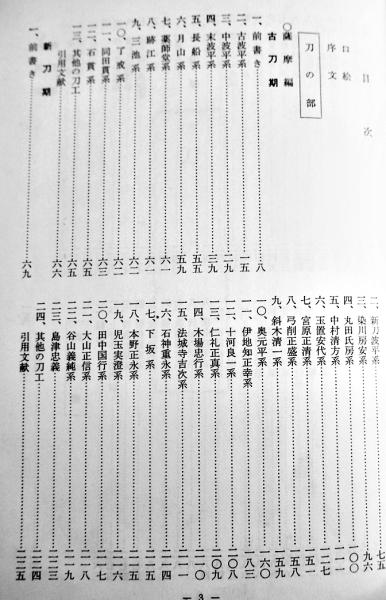 目次
口絵
序文
刀の部
○薩摩編
古刀期
一、前書き……八
二、古波平系……一五
三、中波平系……二九
四、末波平系……三九
五、長船系……五五
六、月山系……五九
七、薬師堂系……六一
八、跡江系……六一
九、三池系……六二
一〇、了戒系……六二
一一、同田貫系……六三
一二、石貫系……六五
一三、其他の刀工……六五
引用文献……六六
新刀期
一、前書き……六九
二、新刀波平系……七五
三、染川房安系……九六
四、丸田氏房系……一〇〇
五、中村清方系……
六、玉置安代系……一二七
七、宮原正清系……
八、弓削正盛系……一五八
九、斜木清一系……一五九
一〇、奥元平系……一六〇
一一、伊地知正幸系……一八三
一二、十河良一系……二〇八
一三、仁礼正真系……二〇九
一四、木場忠行系……二一〇
一五、法城寺吉次系……二一一
一六、石神重永系……二一四
一七、下坂系……二一五
一八、本野正永系……二一五
一九、児玉実澄系……二一六
二〇、田中国行系……二一七
二一、大山正信系……二一八
二二、谷山義純系……二一九
二三、島津忠義……二二三
二四、其他の刀工……二二四
引用文献……二二五
— 3 —